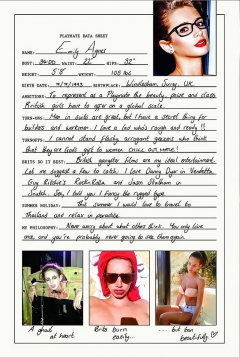 PLAYMATE DATA SHEET
NAME: Emily Agnes
BUST: 34DD WAIST: 22" HIPS: 32"
HEIGHT: 5'8" WEIGHT: 108 lbs
BIRTH DATE: BIRTHPLACE: Windlesham, Surrey, UK
AMBITIONS: To represent as a Playmate the beauty, poise and class
British girls have to offer on a global scale.
TURN-ONS: Men in suits are great, but I have a secret thing for
builders and workmen! I love a lad who's rough and ready!!
TURNOFFS: I cannot stand flashy, arrogant geezers who think
that they are God's gift to women. CHILL OUT, MATE!
BRITS DO IT BEST: British gangster films are my ideal entertainment.
Let me suggest a few to catch: I love Danny Dyer in Vendetta,
Guy Ritchie's RocknRolla and Jason Statham in
Snatch. Can I tell you I fancy the rugged type.
SUMMER HOLIDAY: This summer I would love to travel to
Thailand and relax in paradise.
MY PHILOSOPHY: Never worry about what others think. You only live
once, and you're probably never going to see them again.
A ghoul
at heart
Brits burn
easily...
... but tan
beautifully